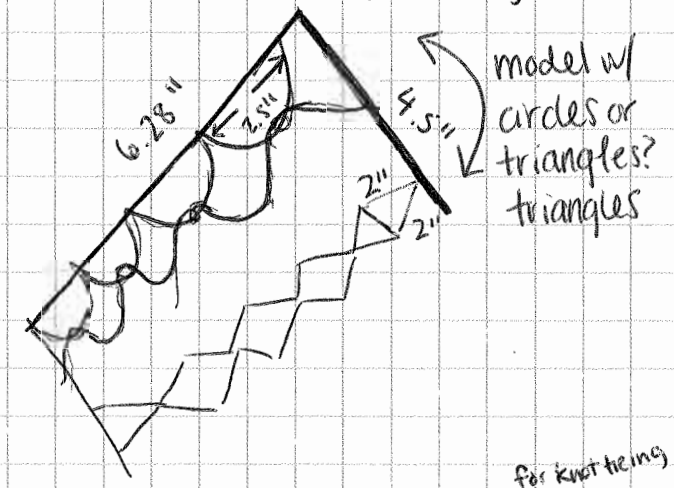 6.28"
2.5"
4.5"
model w/
circles or
triangles?
triangles
2"
2"
for knot tieing